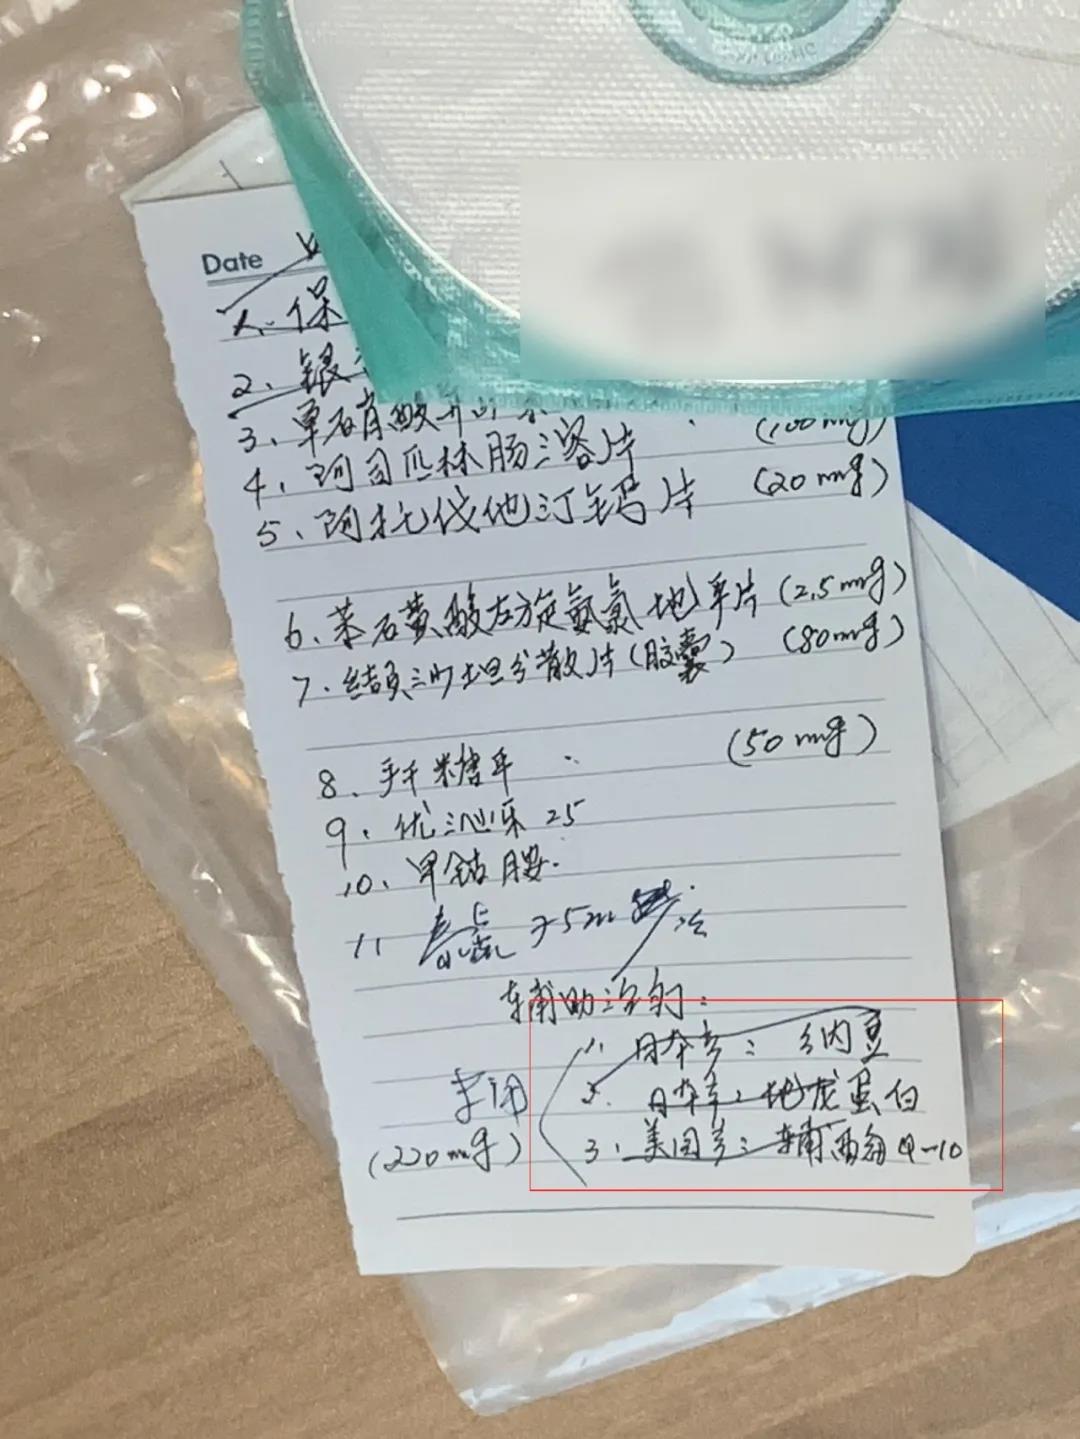 Date
1. 保
2、银
3、单硝酸异山梨 (100mg)
4、阿司匹林肠溶片
5、阿托伐他汀钙片 (20mg)
6、苯石黄酸左旋氨氯地平片 (2.5mg)
7、缬沙坦分散片(胶囊) (80mg)
8、 (50mg)
9、优泌乐25
10、甲钴胺.
11
辅助治疗:
1、日本产: 纳豆
2. 日本产: 地龙蛋白
3、美国产: 辅酶Q-10
(220mg)